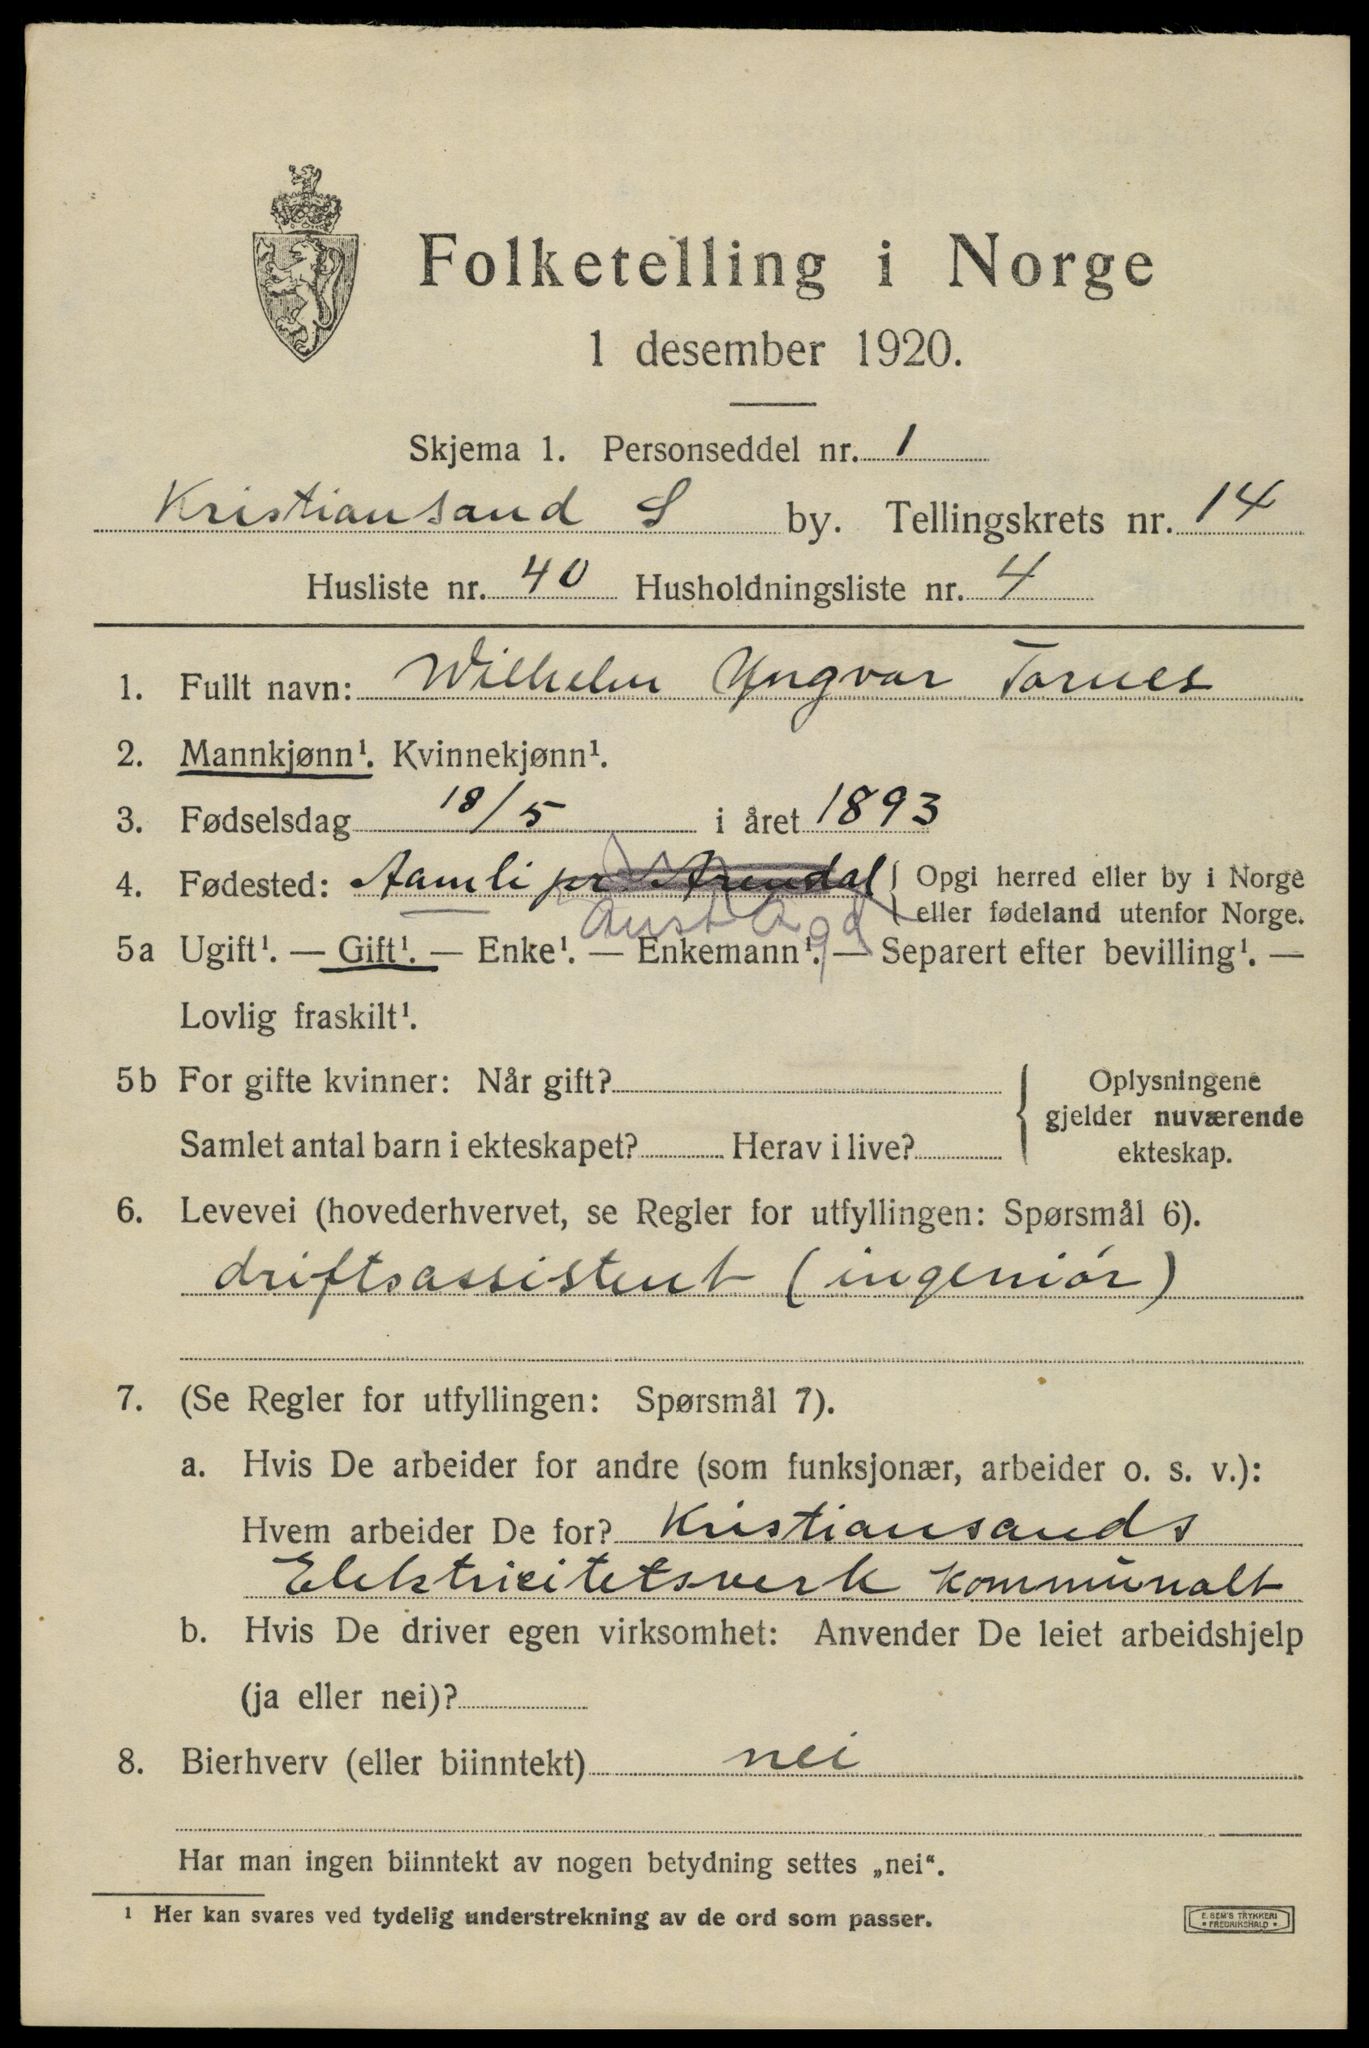 Folketelling i Norge
1 desember 1920.
Skjema 1. Personseddel nr. 1
Kristiansand S by. Tellingskrets nr. 14
Husliste nr. 40 Husholdningsliste nr. 4
1. Fullt navn: Wilhelm Yngvar Tarnes
2. Mannkjønn¹. Kvinnekjønn¹.
3. Fødselsdag 18/5 i året 1893
4. Fødested: Aamli pr. Arendal { Opgi herred eller by i Norge
eller fødeland utenfor Norge.
Aust Agd
5a Ugift¹. — Gift¹. — Enke¹. — Enkemann¹. — Separert efter bevilling¹. —
Lovlig fraskilt¹.
5b For gifte kvinner: Når gift?
Samlet antal barn i ekteskapet? Herav i live?
{ Oplysningene
gjelder nuværende
ekteskap.
6. Levevei (hovederhvervet, se Regler for utfyllingen: Spørsmål 6).
driftsassistent (ingeniør)
7. (Se Regler for utfyllingen: Spørsmål 7).
a. Hvis De arbeider for andre (som funksjonær, arbeider o. s. v.):
Hvem arbeider De for? Kristiansands
Elektricitetsverk kommunalt
b. Hvis De driver egen virksomhet: Anvender De leiet arbeidshjelp
(ja eller nei)?
8. Bierhverv (eller biinntekt) nei
Har man ingen biinntekt av nogen betydning settes „nei“.
¹ Her kan svares ved tydelig understrekning av de ord som passer.
E. SEM'S TRYKKERI
• FREDRIKSHALD •